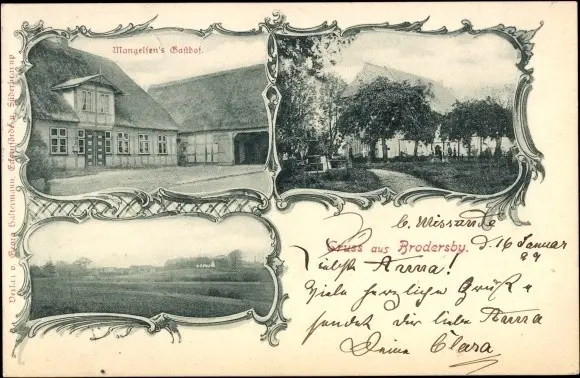 Mangelsen's Gasthof.
Verlag v. Georg Haltermann, Eckernförde u. Süderbrarup
b. Missunde
Gruss aus Brodersby.
d. 16 Januar
99
Liebste Anna!
Viele herzliche Grüße
sendet dir liebe Anna
Deine Clara